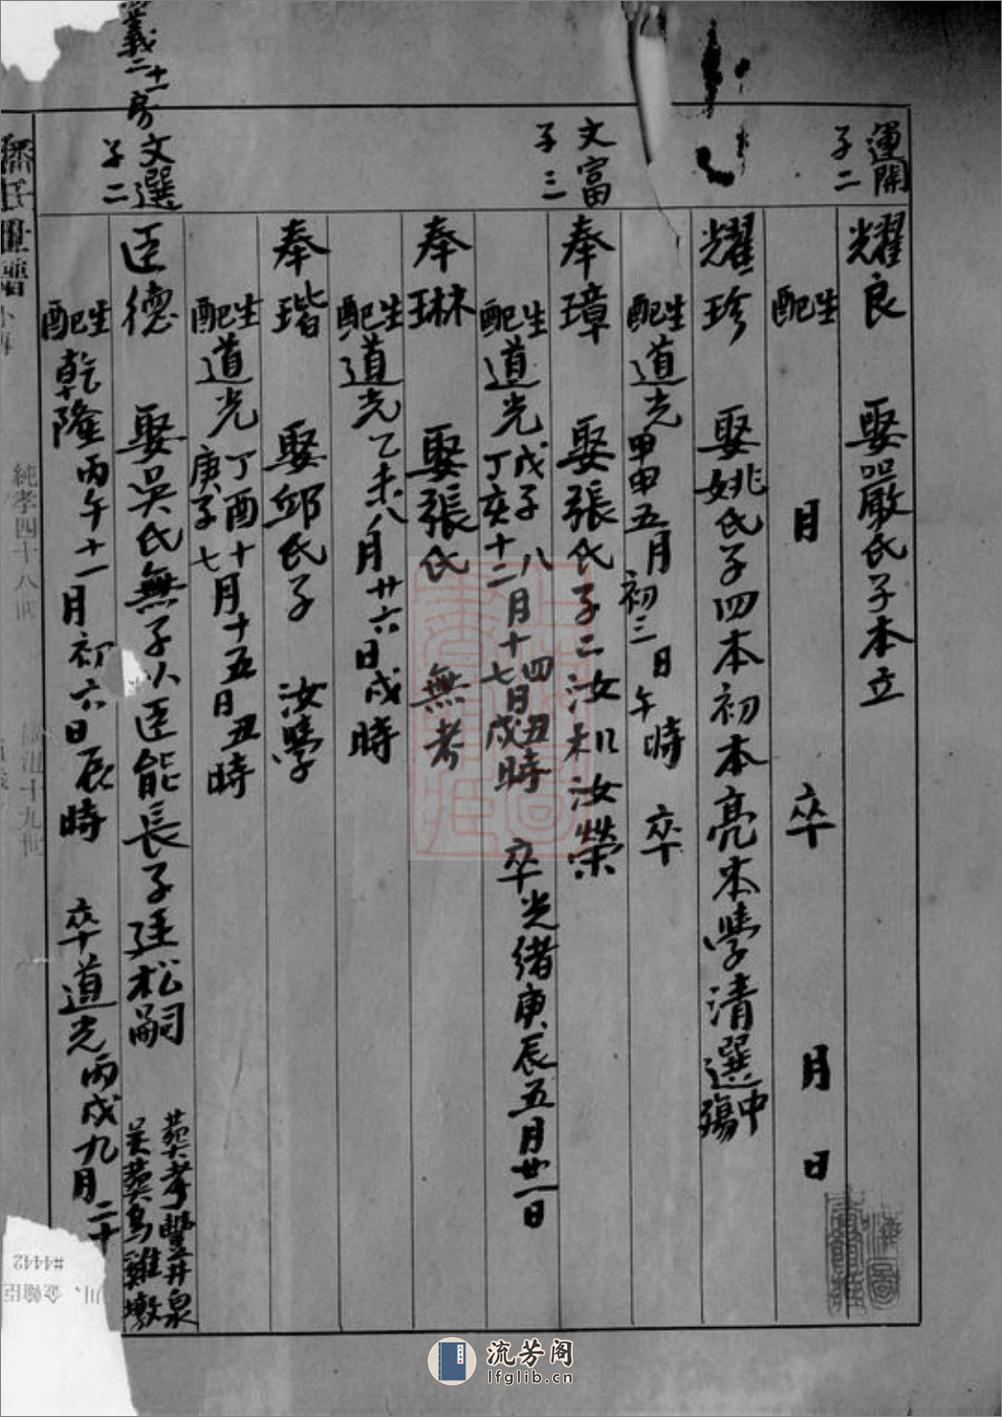 運開
子二
耀良 娶嚴氏子本立
生配 月 卒 月 日
耀珍 娶姚氏子四本初本亮本學清選中殤
生配道光甲申五月初三日午時 卒
文富
子三
奉璋 娶張氏子二汝機汝榮
生配道光戊子八月十四丑時 卒光緒庚辰五月廿一日
丁亥十二月十七日戌時
奉琳 娶張氏 無考
生配道光乙未八月廿六日戌時
奉瑎 娶邱氏子 汝學
生配道光丁酉十月十五日丑時
庚子七
義二十一房文選
子二
臣德 娶吳氏無子以臣能長子廷松嗣 葬孝豐井泉
吳葬烏雞墩
生配乾隆丙午十一月初六日辰時 卒道光丙戌九月二十
潘氏世譜
純孝四十八世
十九世
#4442
流芳阁
lfglib.cn